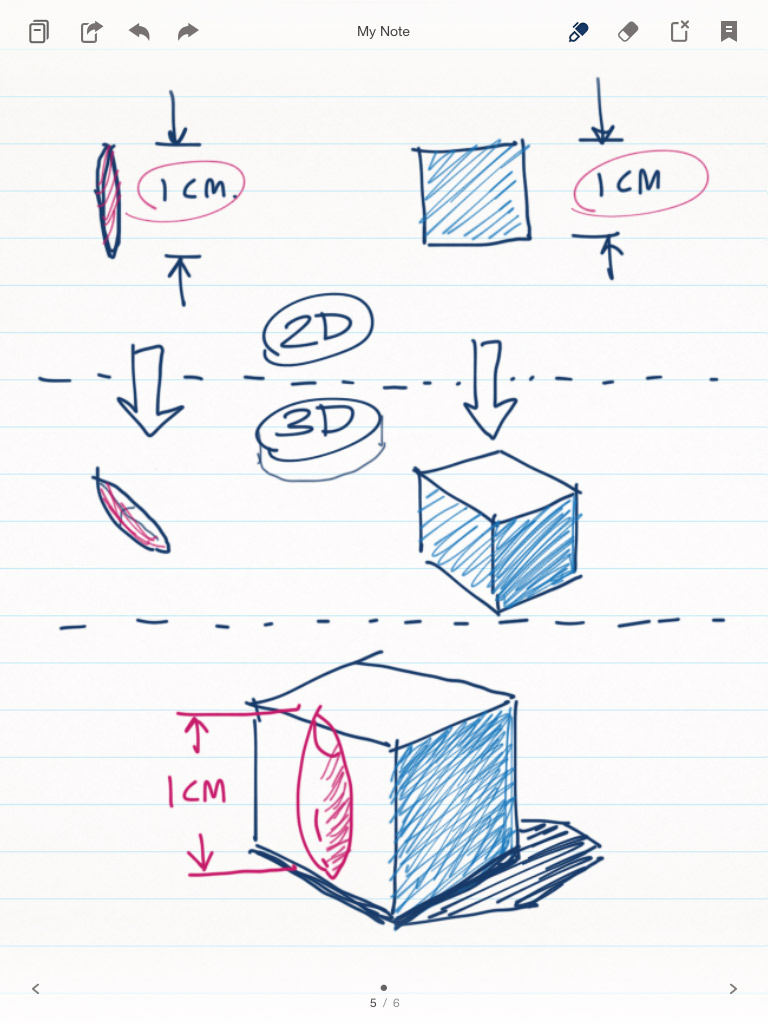 My Note
1 CM.
1 CM
2D
3D
1 CM
5 / 6